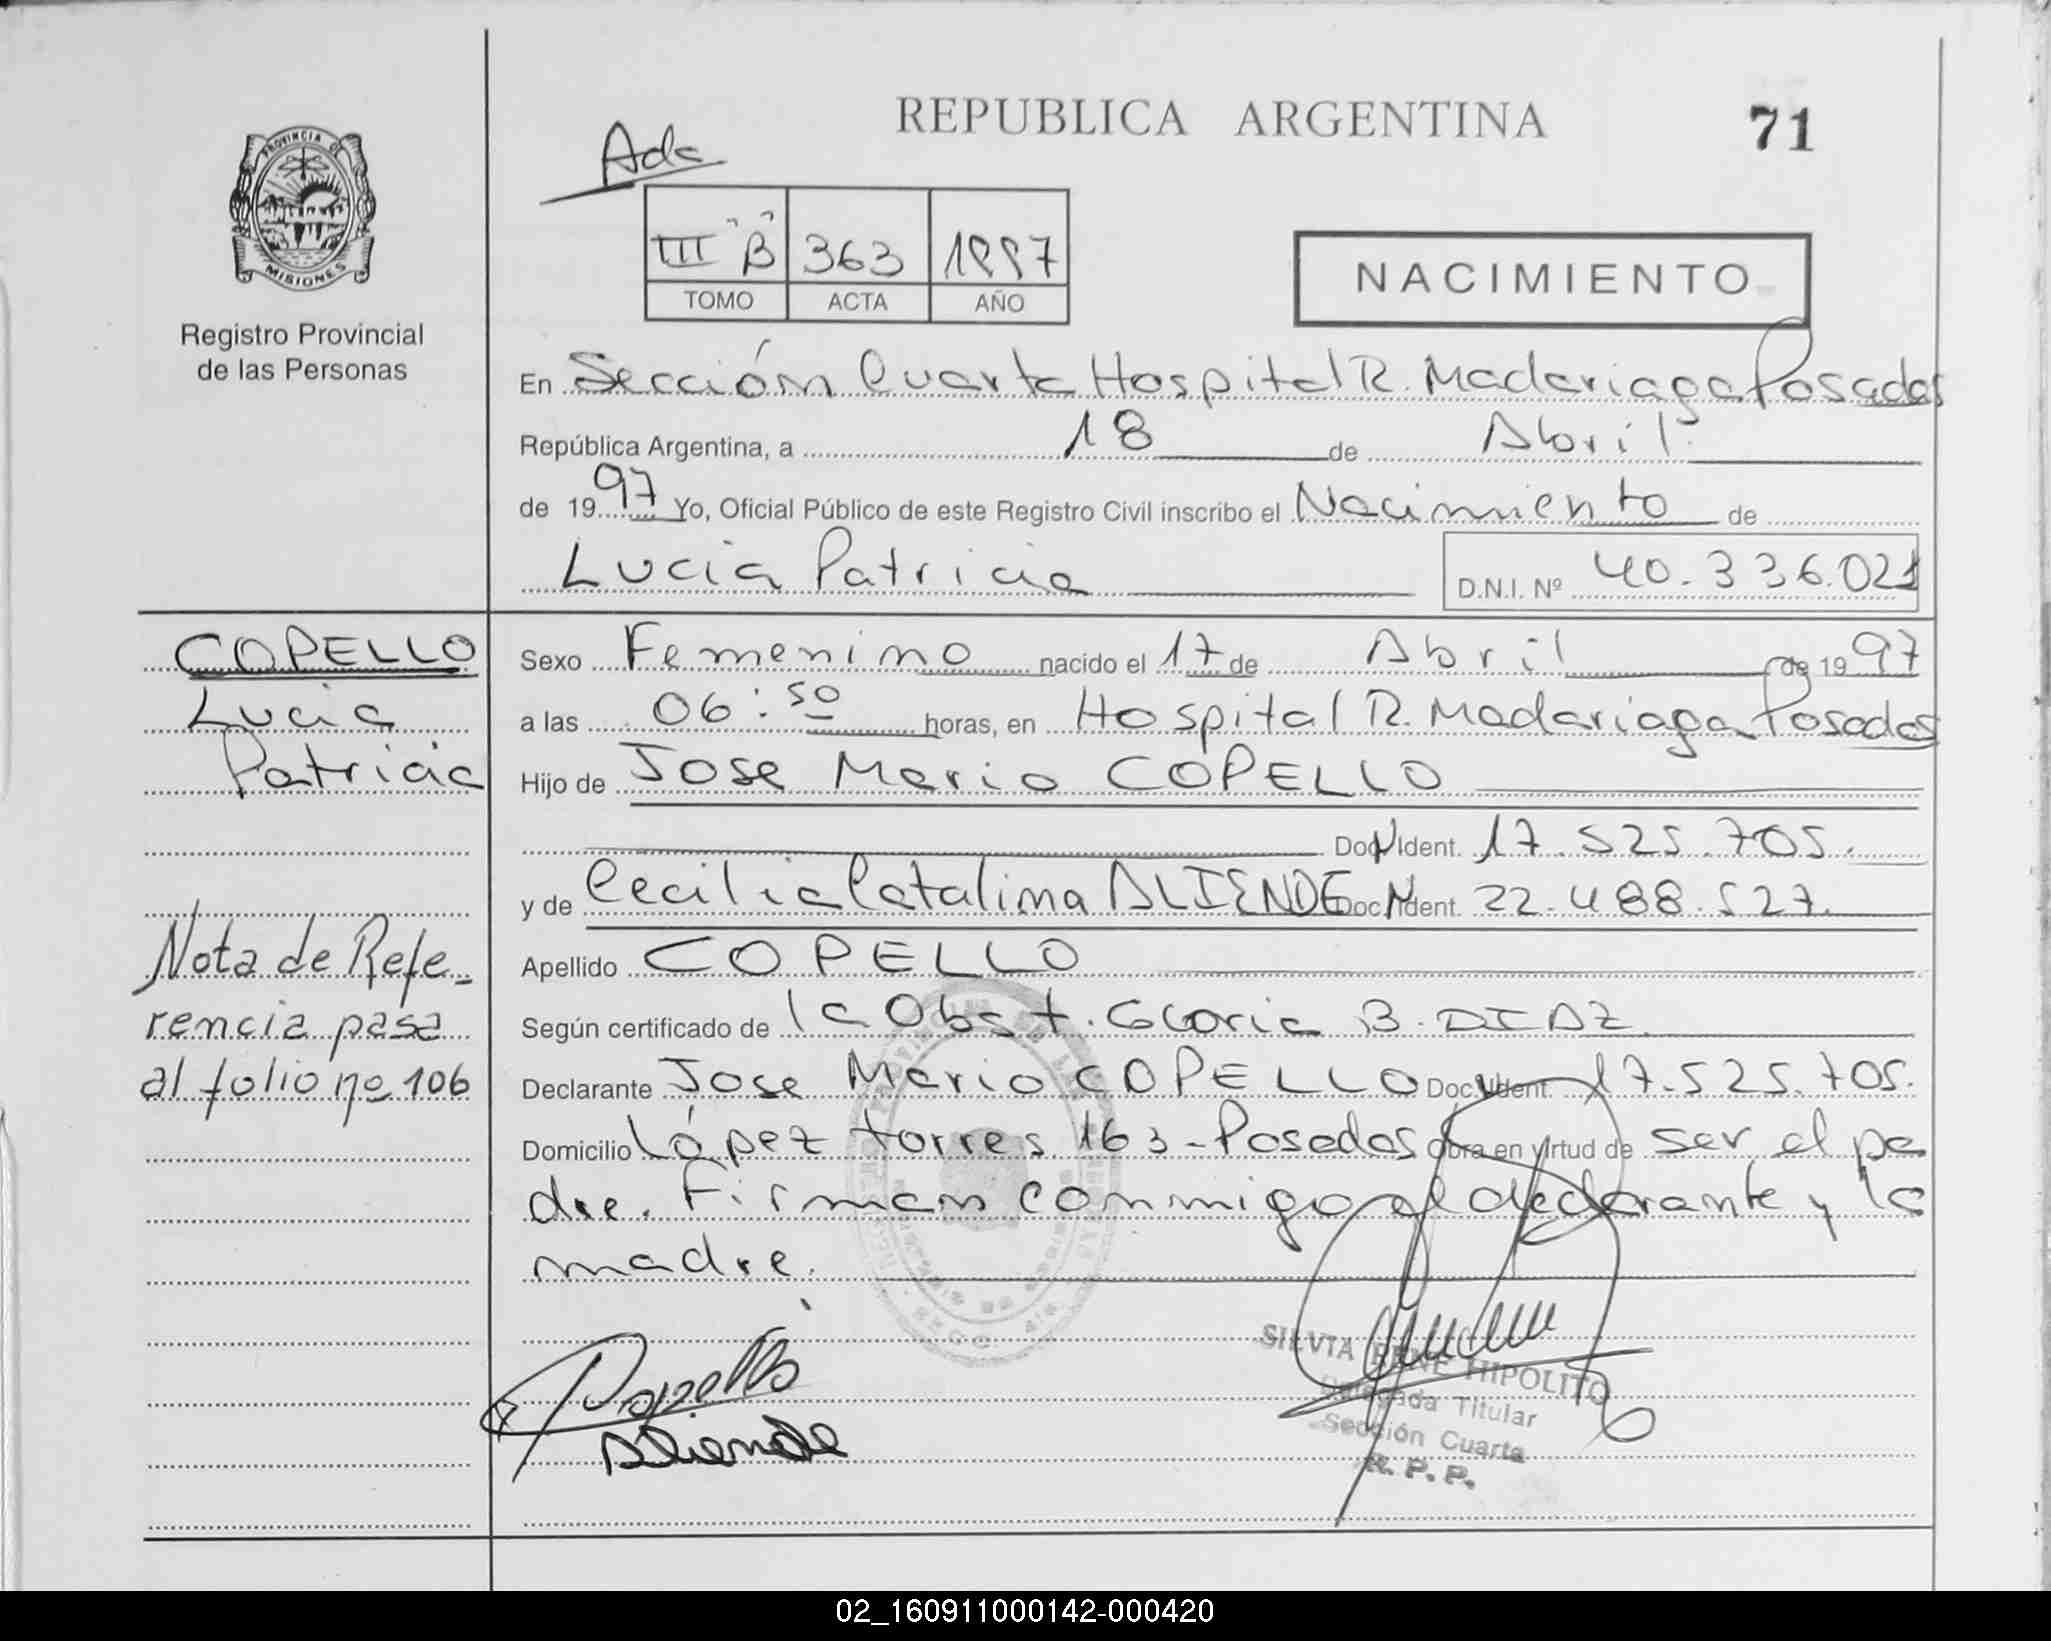 REPUBLICA ARGENTINA
71
Ads
PROVINCIA DE
MISIONES
Registro Provincial
de las Personas
III "B" 363 1997
TOMO ACTA AÑO
NACIMIENTO
En Sección Cuarta Hospital R. Madariaga Posadas
República Argentina, a 18 de Abril
de 1997 Yo, Oficial Público de este Registro Civil inscribo el Nacimiento de
Lucia Patricia D.N.I. Nº 40.336.021
COPELLO
Lucia
Patricia
Sexo Femenino nacido el 17 de Abril de 1997
a las 06:50 horas, en Hospital R. Madariaga Posadas
Hijo de Jose Mario COPELLO
Doc. Ident. 17.525.705.
y de Cecilia Catalina ALIENDE Doc. Ident. 22.488.527.
Apellido COPELLO
Según certificado de la Obst. Gloria B. DIAZ
Declarante Jose Mario COPELLO Doc. Ident. 17.525.705.
Domicilio López torres 163-Posadas Obra en virtud de ser el pa
dre. Firman conmigo el declarante y la
madre.
Nota de Refe-
rencia pasa
al folio nº 106
Copello
Aliende
SILVIA RENE HIPOLITO
Delegada Titular
Sección Cuarta
R. P. P.
02_160911000142-000420